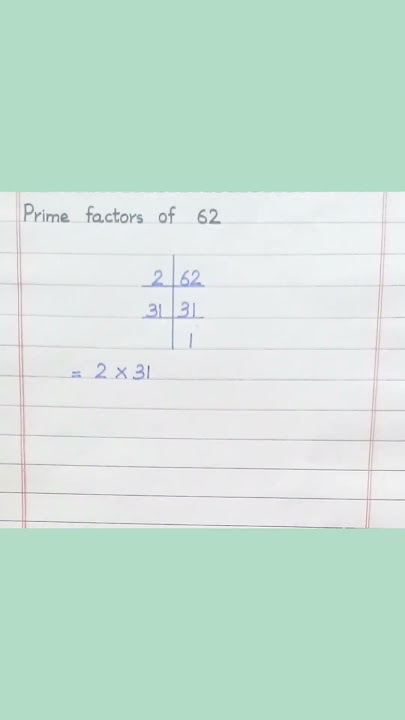 Prime factors of 62
2 62
31 31
1
= 2 × 31